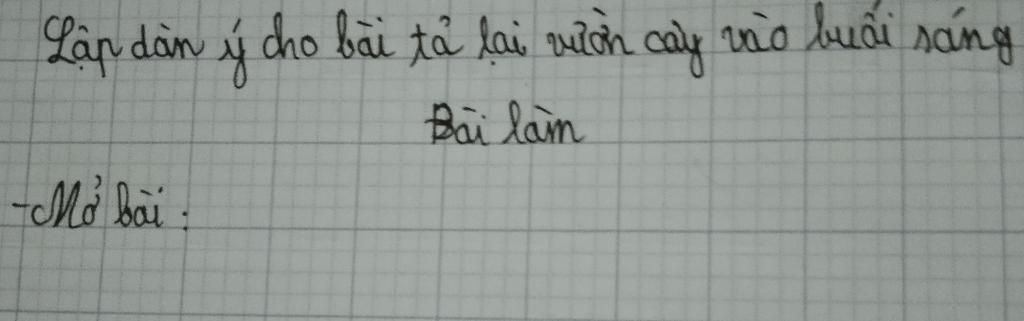 Lập dàn ý cho bài tả lại vườn cây vào buổi sáng
Bài làm
- Mở bài :